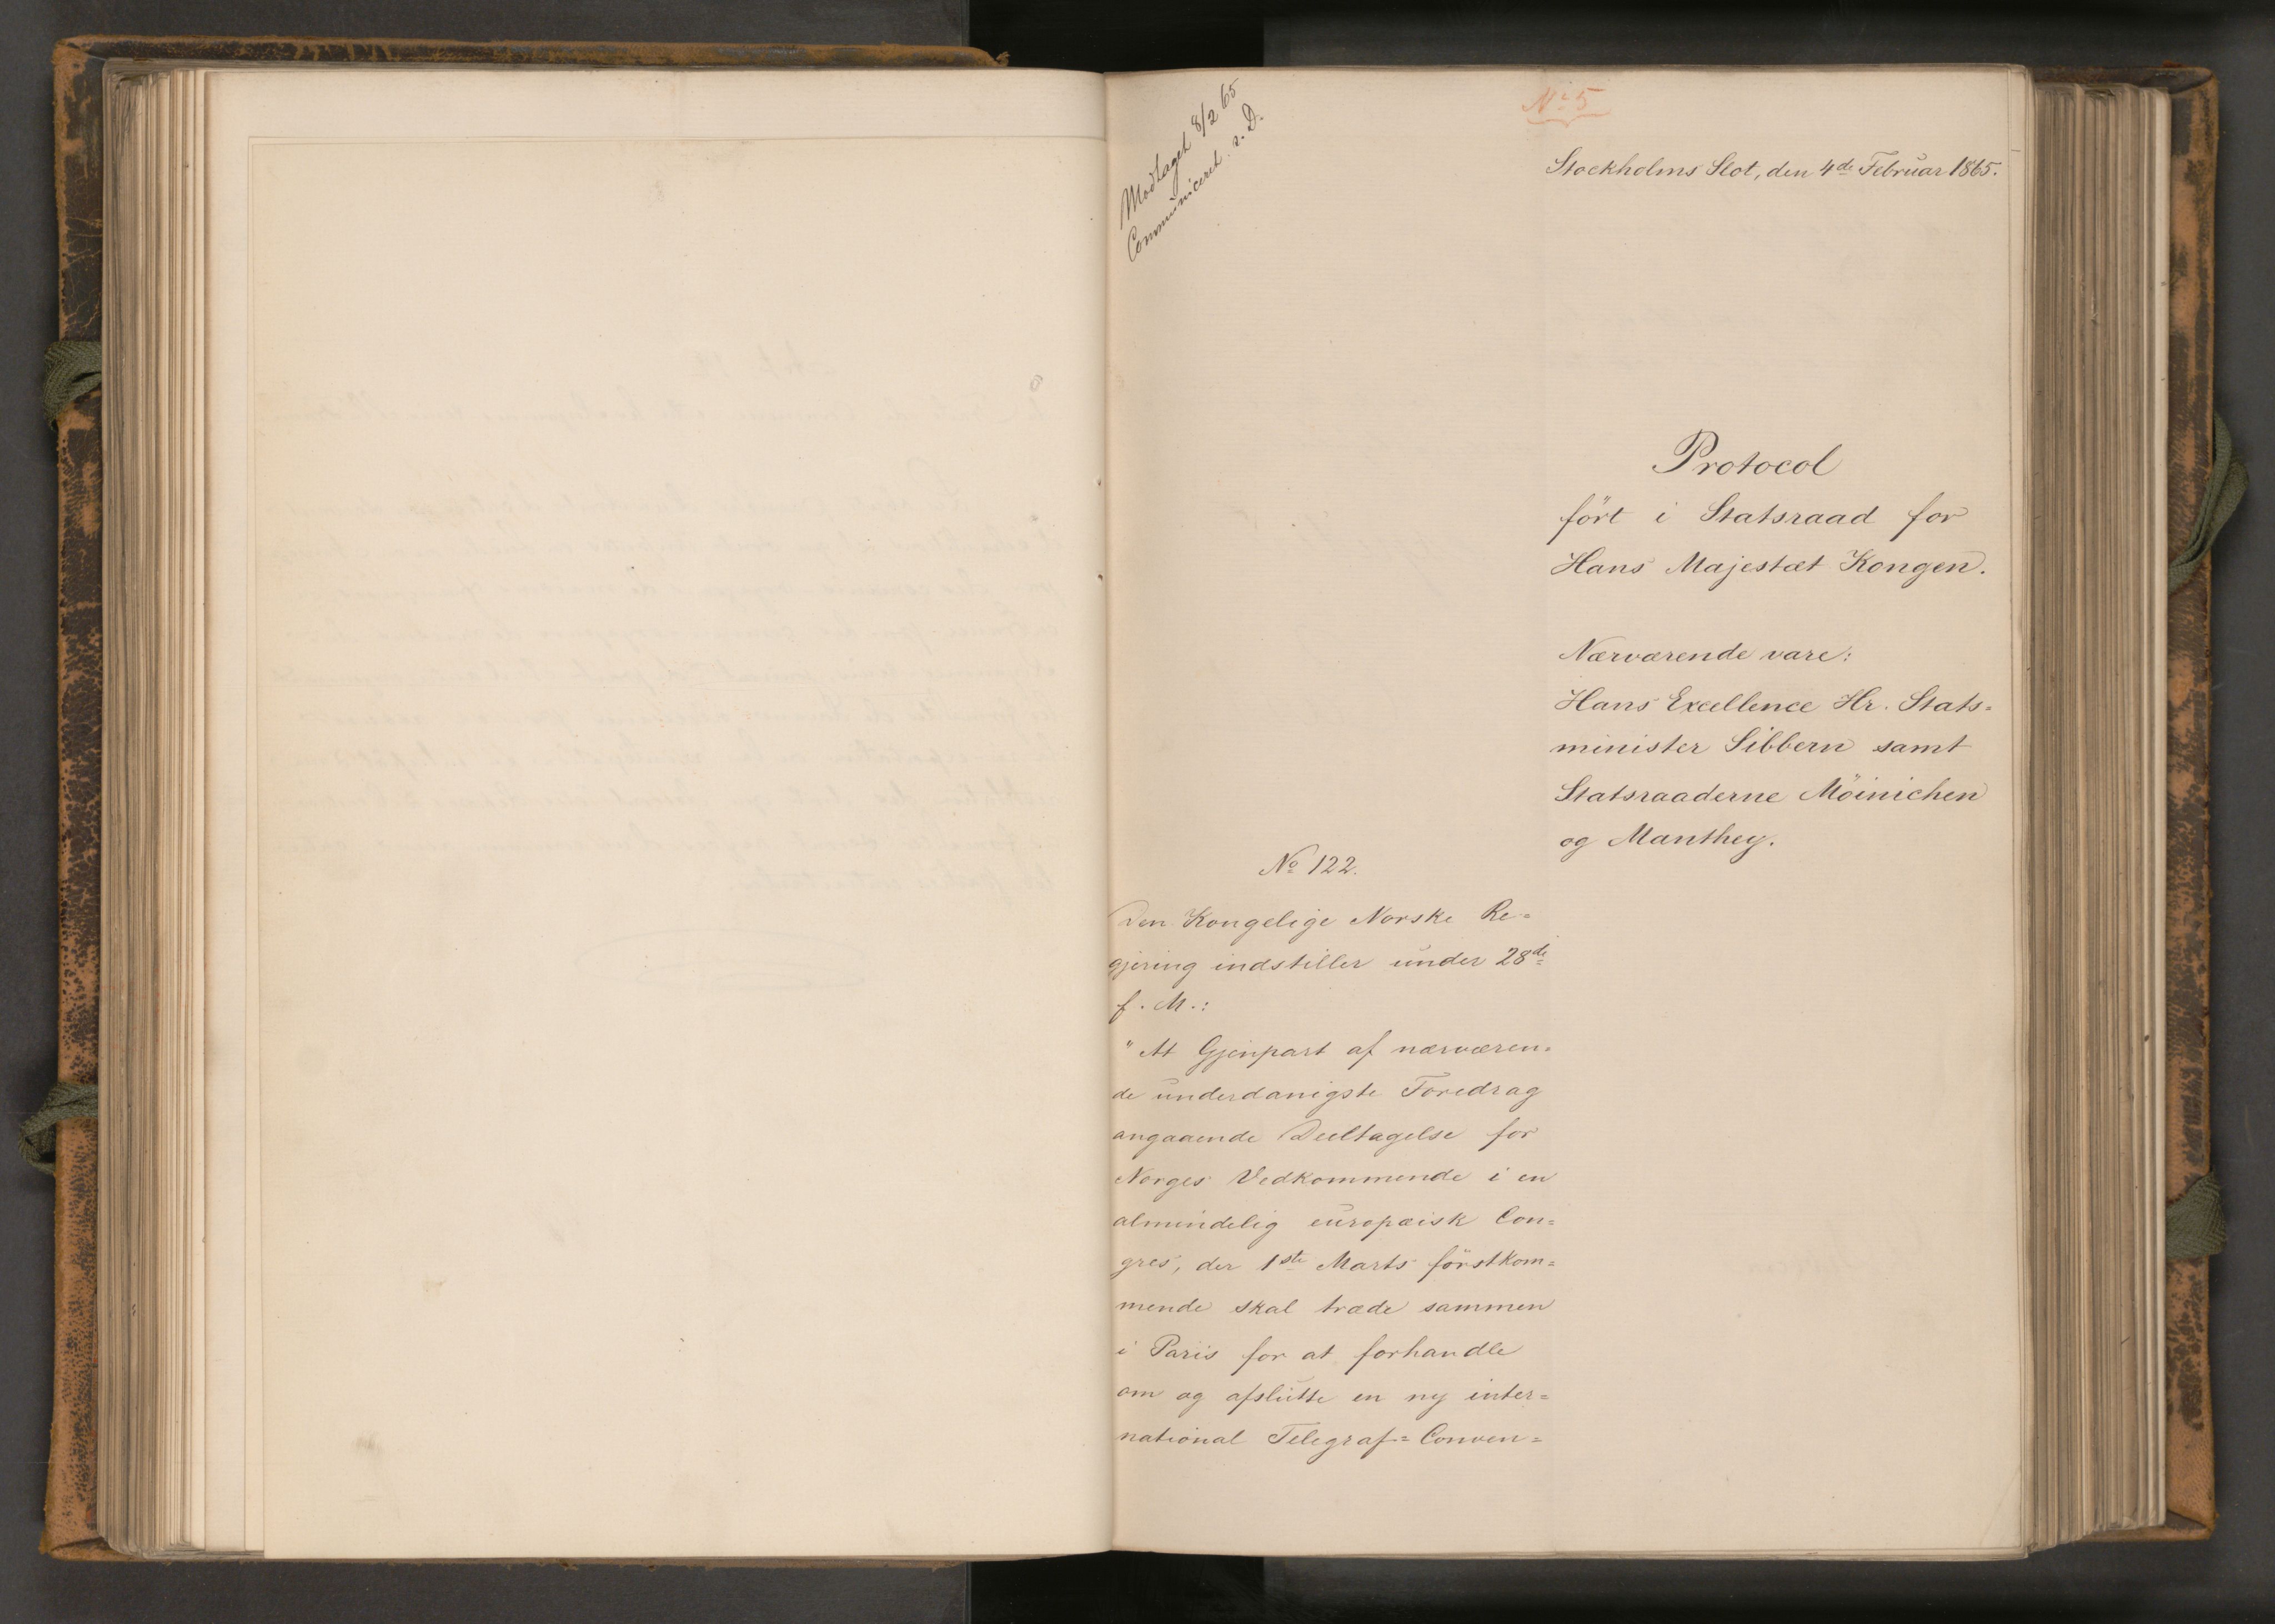 Modtaget 8/2 65
Communiceret s. D.
No 5
Stockholms Slot, den 4de Februar 1865.
Protocol
fört i Statsraad for
Hans Majestæt Kongen.
Nærværende vare:
Hans Excellence Hr. Stats=
minister Sibbern samt
Statsraaderne Möinichen
og Manthey.
No 122.
Den Kongelige Norske Re=
gjering indstiller under 28de
f. M.:
"At Gjenpart af nærværen=
de underdanigste Foredrag
angaaende Deeltagelse for
Norges Vedkommende i en
almindelig europæisk Con=
gres, der 1ste Marts förstkom=
mende skal træde sammen
i Paris for at forhandle
om og afslutte en ny inter=
national Telegraf=Conven=